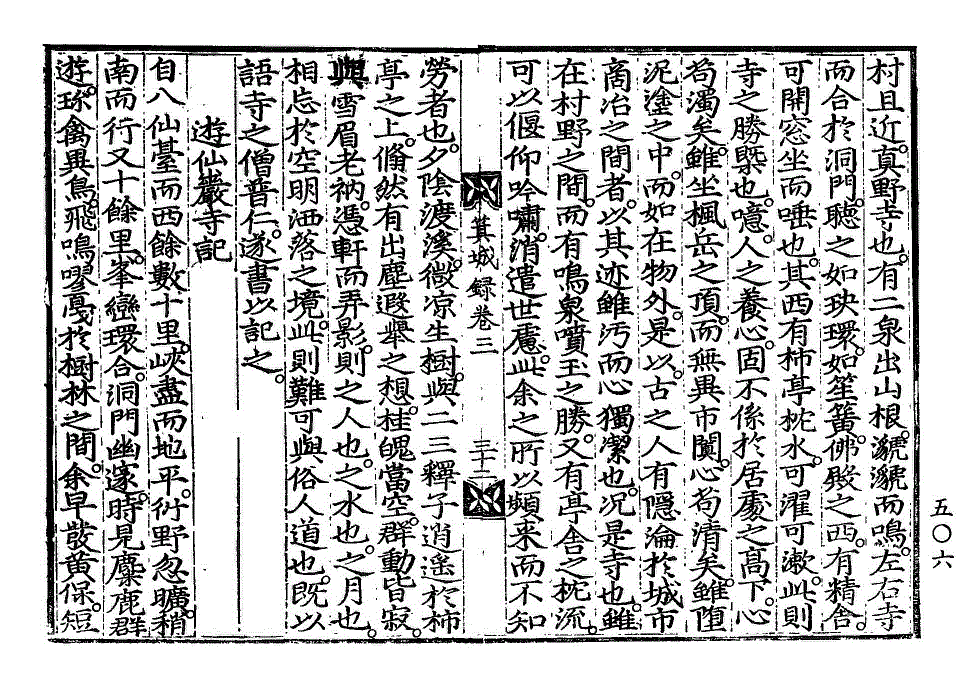 村且近。真野寺也。有二泉出山根。㶁㶁而鳴。左右寺
而合於洞門。聽之如玦環。如笙簧。佛殿之西。有精舍。
可開窓坐而唾也。其西有柿亭枕水。可濯可漱。此則
寺之勝槩也。噫。人之養心。固不係於居處之高下。心
苟濁矣。雖坐楓岳之頂。而無異市闤。心苟清矣。雖墮
泥塗之中。而如在物外。是以古之人有隱淪於城市
商冶之間者。以其迹雖污而心獨潔也。况是寺也。雖
在村野之間。而有鳴泉噴玉之勝。又有亭舍之枕流。
可以偃仰吟嘯。消遣世慮。此余之所以頻来而不知
箕城録卷三 三十二
勞者也。夕陰渡溪。微凉生樹。與二三釋子逍遙於柿
亭之上。翛然有出塵遐舉之想。桂魄當空。群動皆寂。
與雪眉老衲。憑軒而弄影。則之人也。之水也。之月也。
相忘於空明洒落之境。此則難可與俗人道也。既以
語寺之僧普仁。遂書以記之。
遊仙巖寺記
自八仙臺而西餘數十里。峽盡而地平。衍野忽曠。稍
南而行又十餘里。峯巒環合。洞門幽邃。時見麋鹿群
遊。珎禽異鳥。飛鳴嘐戛於樹林之間。余早發黄保。短
五〇六